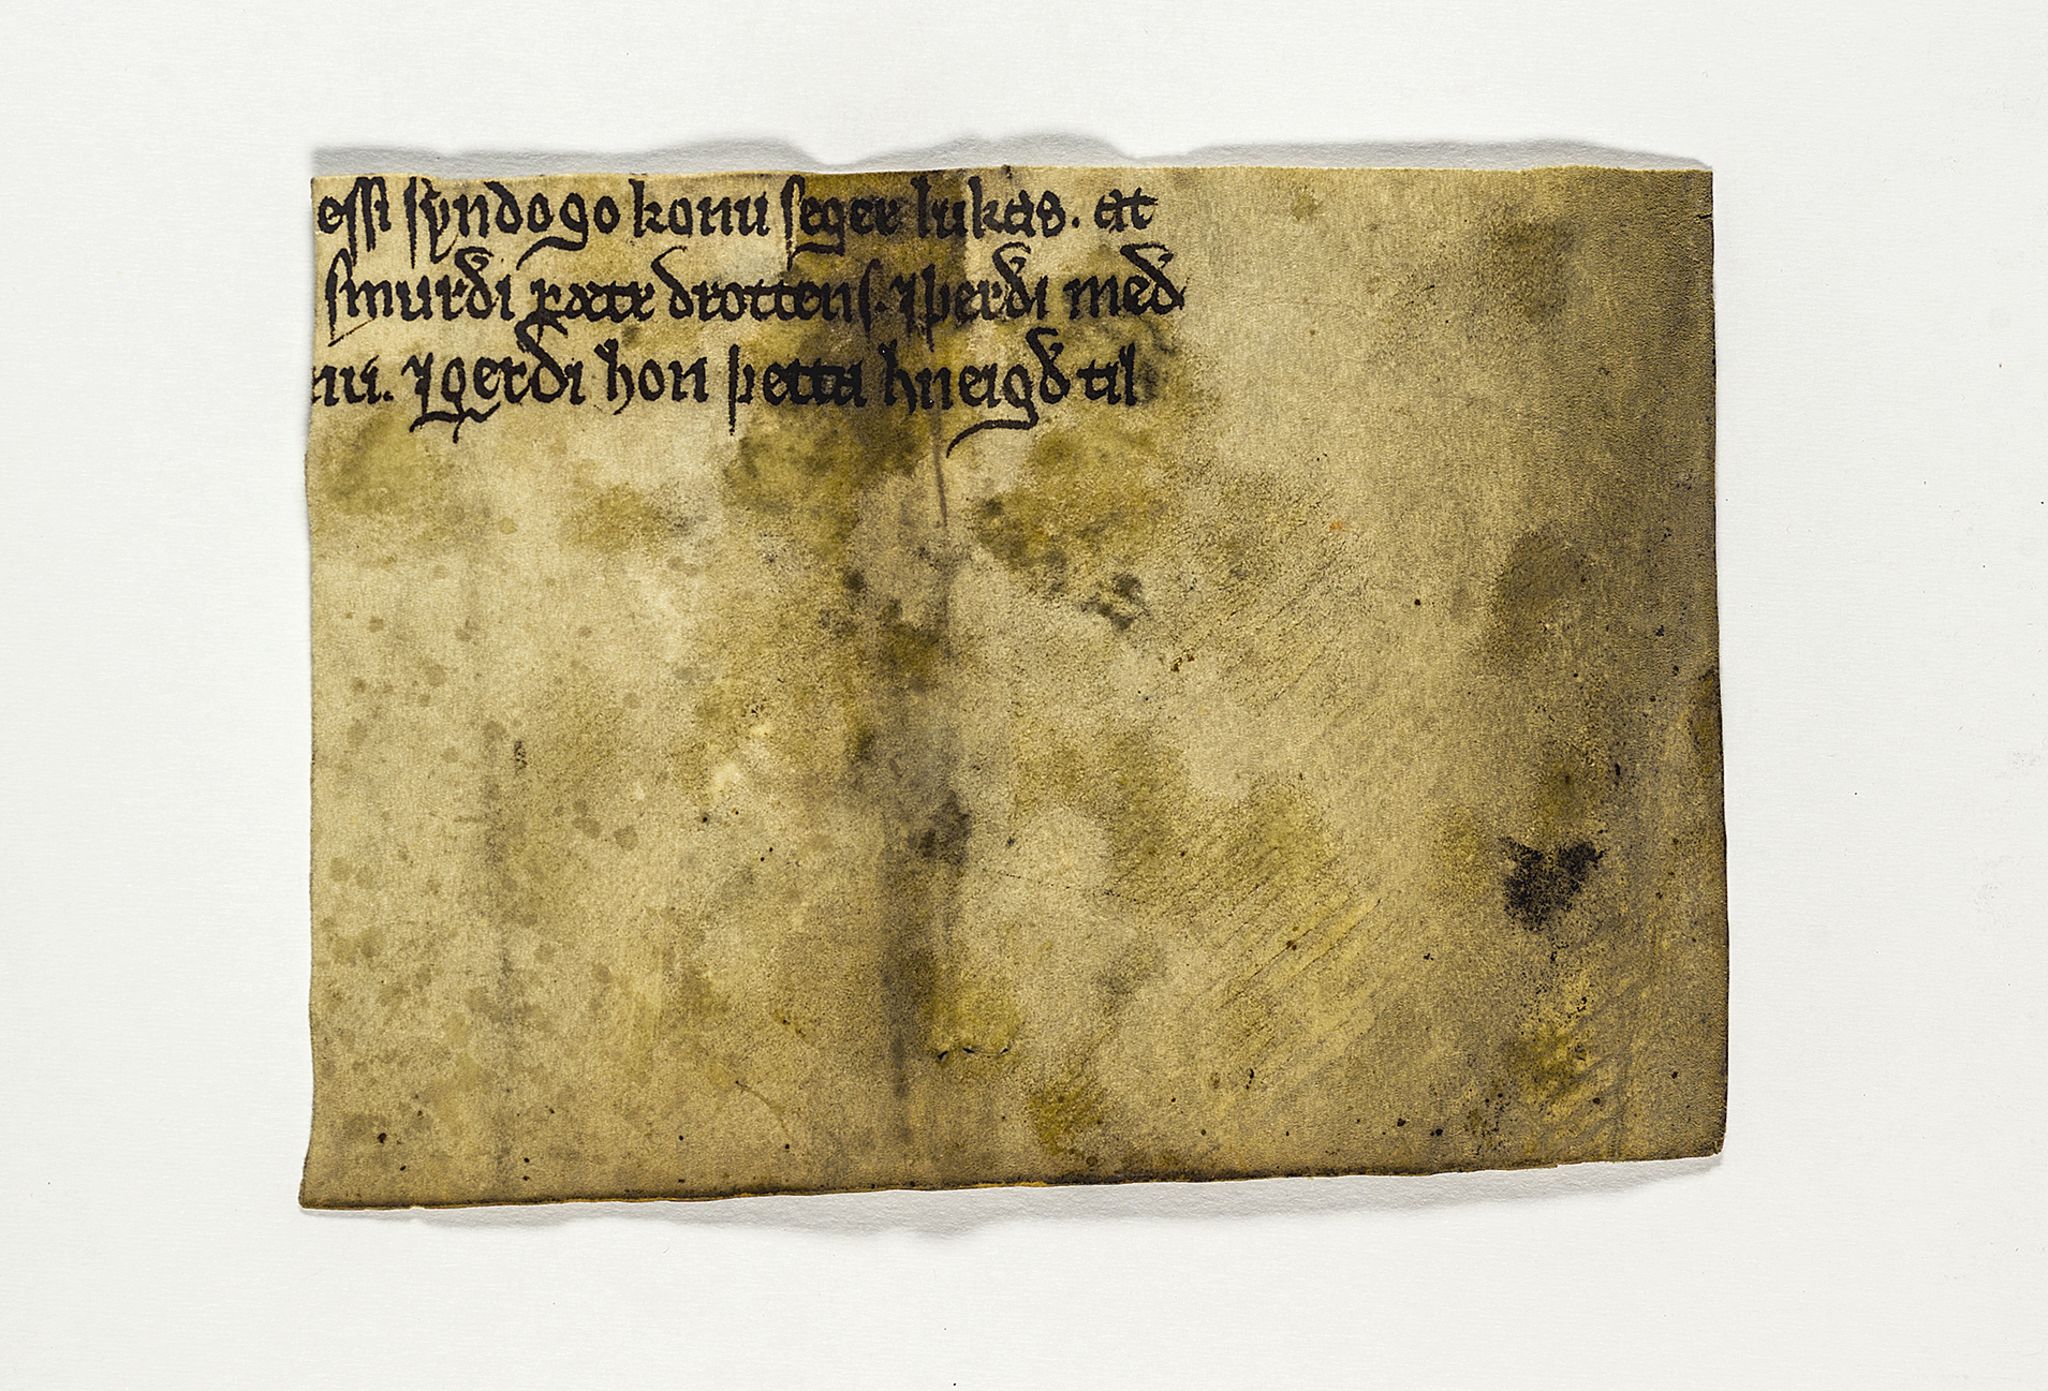 essi syndogo konu seger lukas. at
smurdi fætr drottens. ⁊ þerdi með
ni. ⁊ gerdi hon þetta hneigð til